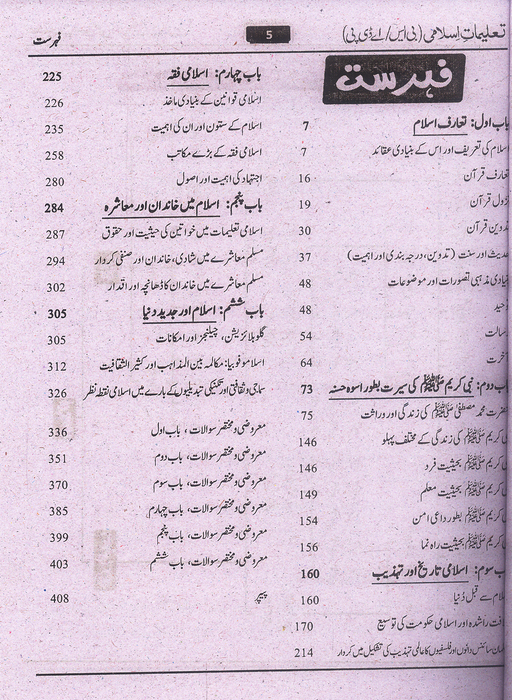 تعلیماتِ اسلامی (بی ایس/ اے ڈی پی)
5
فہرست
فہرست
باب اول: تعارف اسلام 7
اسلام کی تعریف اور اس کے بنیادی عقائد 7
تعارف قرآن 16
نزول قرآن 19
تدوین قرآن 30
حدیث اور سنت (تدوین، درجہ بندی اور اہمیت) 37
بنیادی مذہبی تصورات اور موضوعات 48
توحید 48
رسالت 54
آخرت 64
باب دوم: نبی کریم ﷺ کی سیرت بطور اسوہ حسنہ 73
حضرت محمد مصطفٰی ﷺ کی زندگی اور وراثت 75
نبی کریم ﷺ کی زندگی کے مختلف پہلو 146
نبی کریم ﷺ بحیثیت فرد 146
نبی کریم ﷺ بحیثیت معلم 149
نبی کریم ﷺ بطور داعی امن 154
نبی کریم ﷺ بحیثیت راہ نما 156
باب سوم: اسلامی تاریخ اور تہذیب 160
اسلام سے قبل دُنیا 160
خلافت راشدہ اور اسلامی حکومت کی توسیع 170
مسلمان سائنس دانوں اور فلسفیوں کا عالمی تہذیب کی تشکیل میں کردار 214
باب چہارم: اسلامی فقہ 225
اسلامی قوانین کے بنیادی ماخذ 226
اسلام کے ستون اور ان کی اہمیت 235
اسلامی فقہ کے بڑے مکاتب 258
اجتہاد کی اہمیت اور اصول 280
باب پنجم: اسلام میں خاندان اور معاشرہ 284
اسلامی تعلیمات میں خواتین کی حیثیت اور حقوق 287
مسلم معاشرے میں شادی، خاندان اور صنفی کردار 294
مسلم معاشرے میں خاندان کا ڈھانچہ اور اقدار 302
باب ششم: اسلام اور جدید دنیا 305
گلوبلائزیشن، چیلنجز اور امکانات 305
اسلاموفوبیا: مکالمہ بین المذاہب اور کثیر الثقافیت 312
سماجی و ثقافتی اور تکنیکی تبدیلیوں کے بارے میں اسلامی نقطہ نظر 326
معروضی و مختصر سوالات، باب اول 336
معروضی و مختصر سوالات، باب دوم 351
معروضی و مختصر سوالات، باب سوم 370
معروضی و مختصر سوالات، باب چہارم 385
معروضی و مختصر سوالات، باب پنجم 399
معروضی و مختصر سوالات، باب ششم 403
پیپر 408